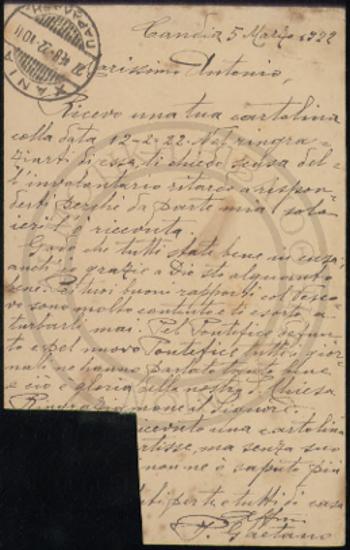 Candia 5 Marzo 1922
Carissimo Antonio,
Ricevo una tua cartolina
colla data 12-2-22. Nel ringra-
ziarti di essa, ti chiedo scusa del-
l'involontario ritardo a rispon-
derti perchè da parte mia solo
ieri l'ò ricevuta.
Godo che tutti state bene in casa,
anch'io grazie a Dio sto alquanto
bene. Dei tuoi buoni rapporti col Vesco-
vo sono molto contento e ti esorto a
turbarti mai. Del Pontefice defun-
to e pel nuovo Pontefice tutti i gior-
nali ne hanno parlato tanto bene
e ciò è gloria della nostra S. Chiesa
Ringraziamone il Signore.
ricevuto una cartolina
ma senza suo
non ne ò saputo più
parte, e tutti di casa
Affmo
P. Gaetano
ΧΑΝΙΑ